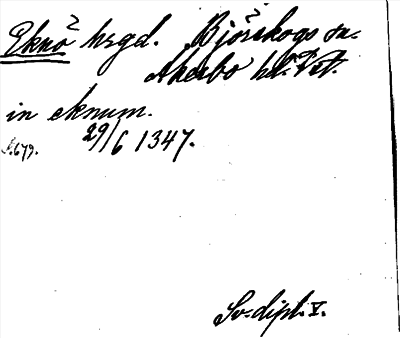 Eknö hrgd. Björskogs sn.
Åkerbo hd. Vstm.
in eknum.
S. 679. 29/6 1347.
Sv. dipl. V.